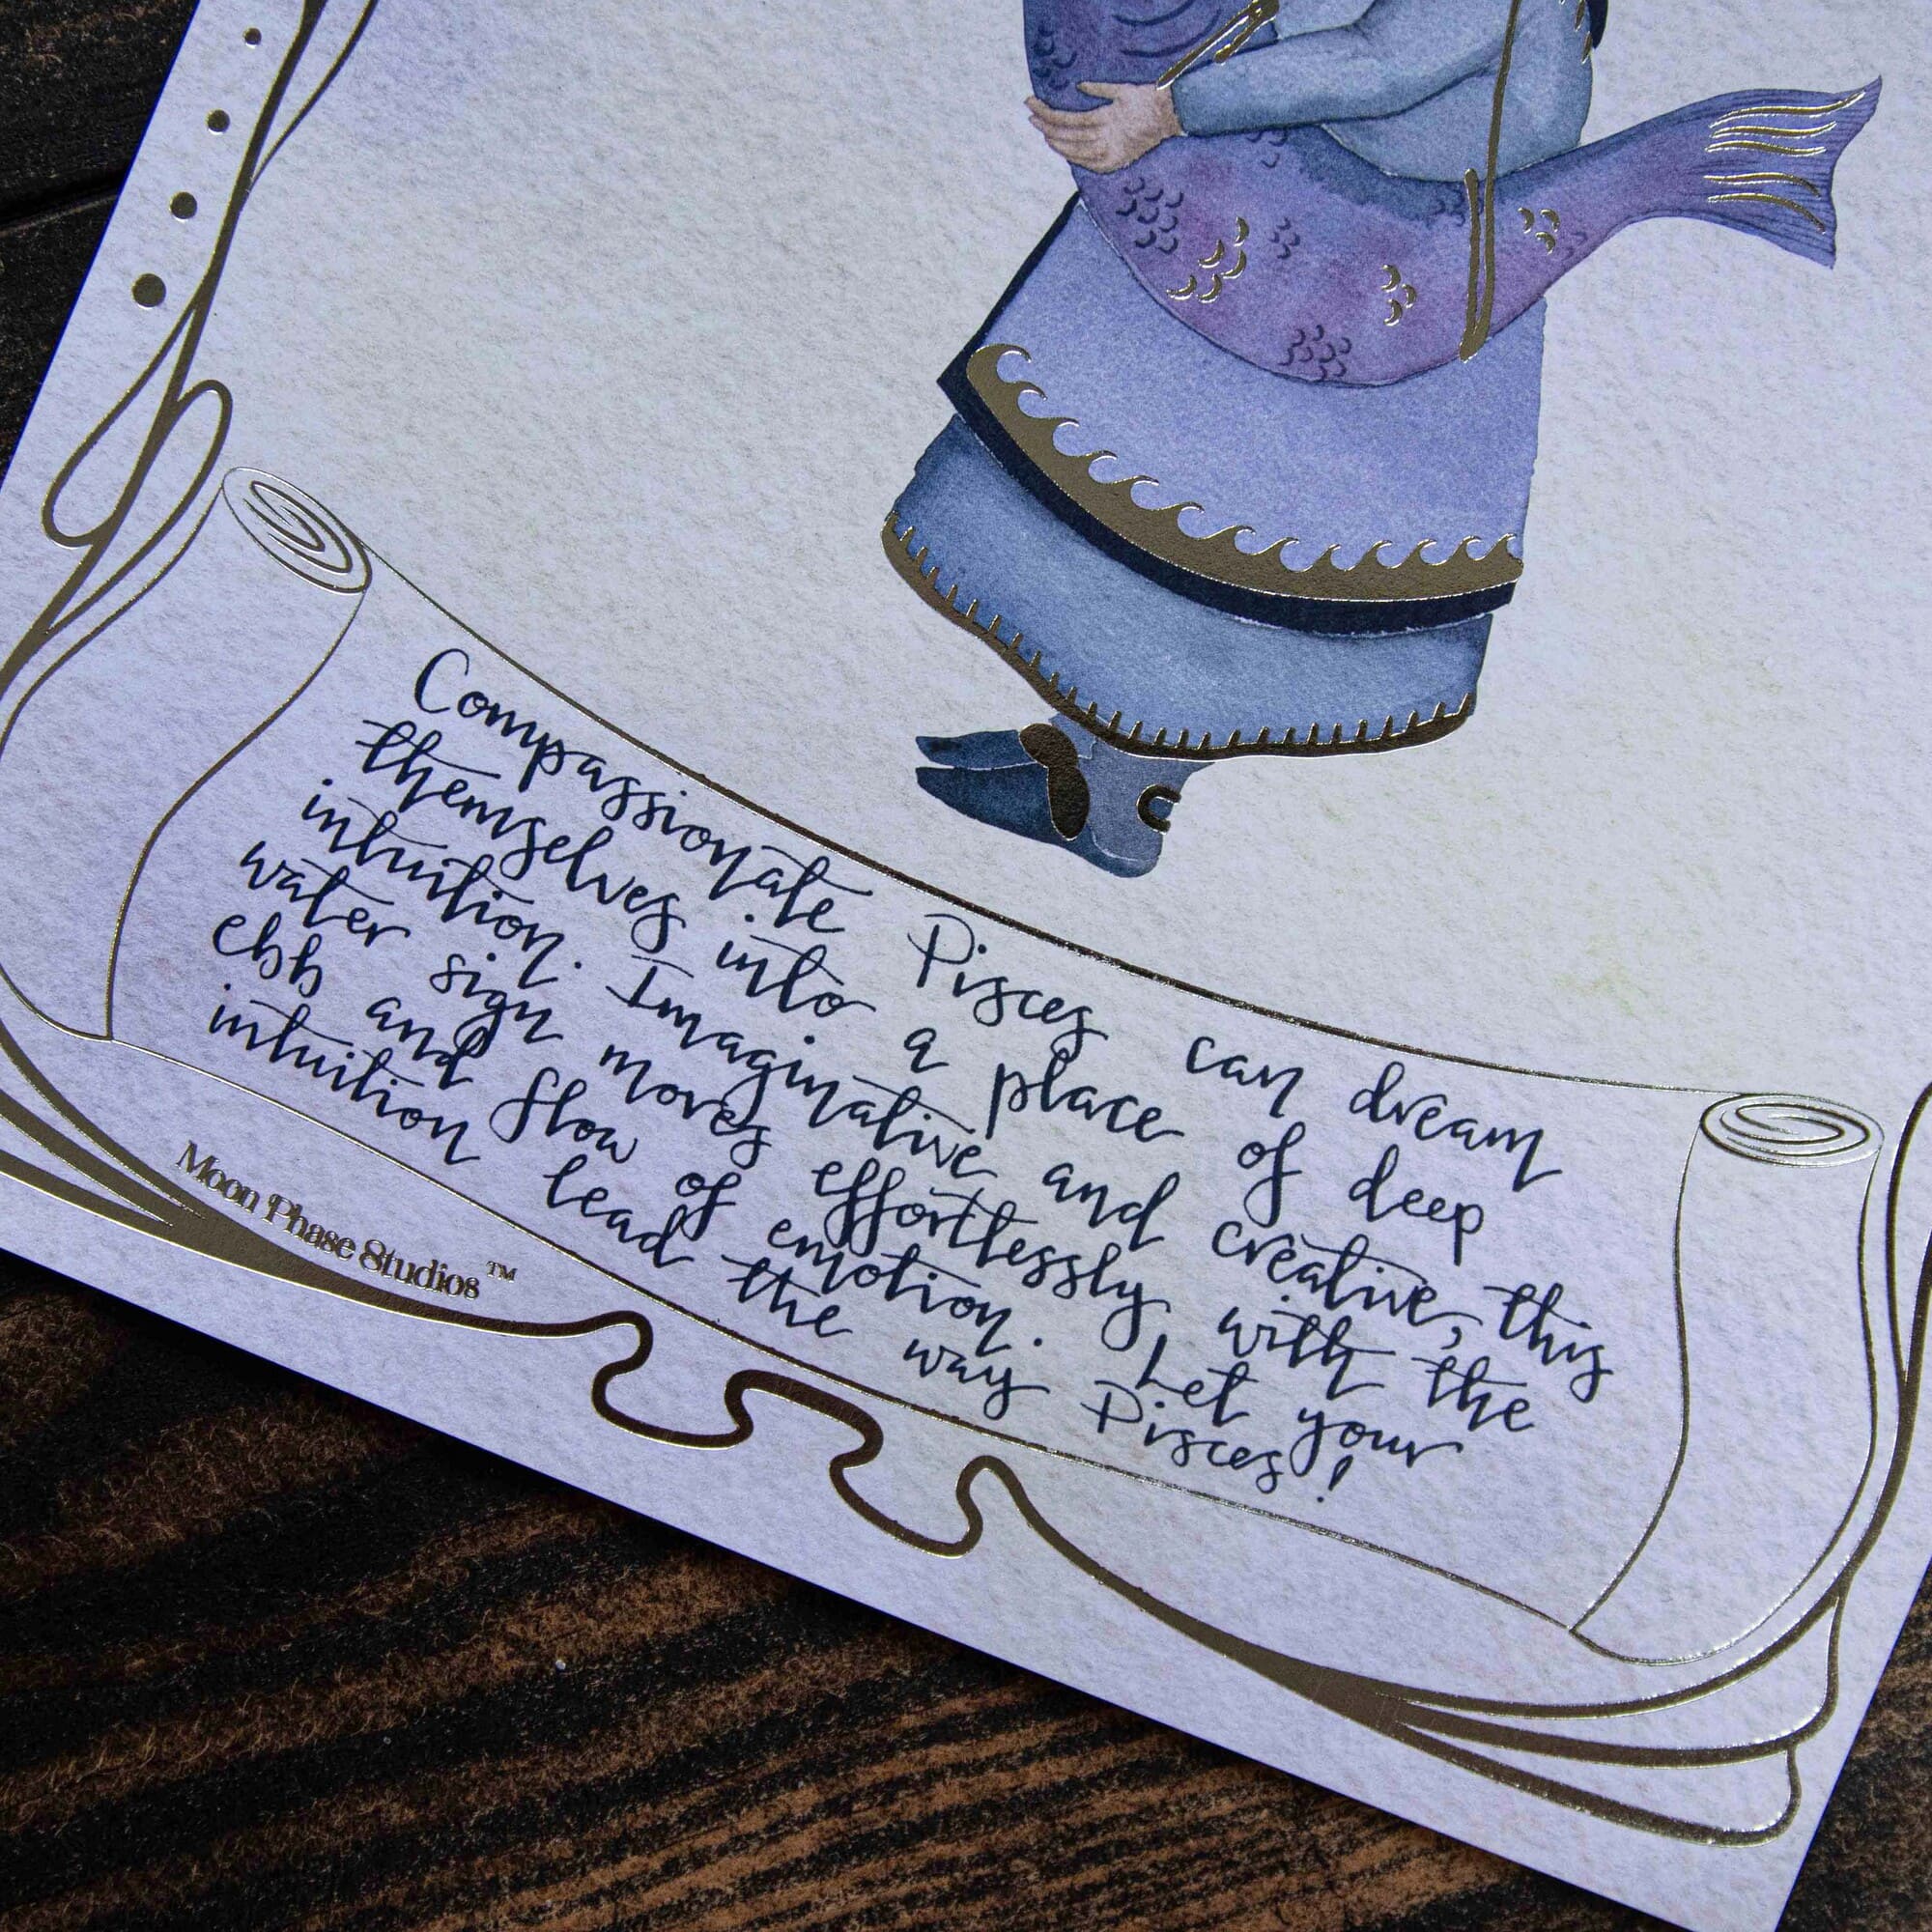 Compassionate Pisces can dream
themselves into a place of deep
intuition. Imaginative and creative, this
water sign moves effortlessly, with the
ebb and flow of emotion. Let your
intuition lead the way Pisces!
Moon Phase Studios™